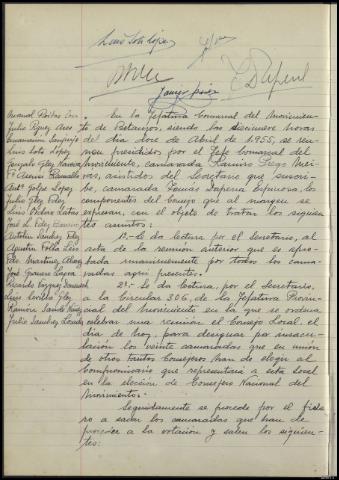 Luis Soto López
E Dapena
Manuel
Julio Pgüez Ares
Luis Soto Lopez
Gonzalo Glez
Antº Golpe Lopez
Julio Glez Fdez
José L. Fdez
Antolin Sanchez Fdez
Agustin Folla Leis
Fº Martinez
José
Ricardo Vazquez
Luis Sevilla Glez
Ramón Sande
Julio Sanchez
En la Jefatura Comarcal del Movimien-
to de Betanzos, siendo las diecinueve horas
del día doce de Abril de 1.955, se reu-
nen presididos por el Jefe Comarcal del
Movimiento, camarada Ramiro Prego Mei-
rás, asistidos del Secretario que suscri-
be, camarada Tomás Dapena Espinosa, los
componentes del Consejo que al margen se
expresan, con el objeto de tratar los siguien-
tes asuntos:
1º.- Se da lectura por el Secretario, al
acta de la reunión anterior que es apro-
bada unanimemente por todos los cama-
radas aquí presentes.
2º.- Se da lectura, por el Secretario,
a la Circular 306, de la Jefatura Provin-
cial del Movimiento en la que se ordena
celebrar una reunión el Consejo Local, el
día de hoy, para designar por insacu-
lación los veinte camaradas que en unión
de otros tantos Consejeros han de elegir al
Compromisario que representará a esta Local
en la elección de Consejero Nacional del
Movimiento.
Seguidamente se procede por el
a sacar los camaradas que han de
proceder a la votación y salen los siguien-
tes: